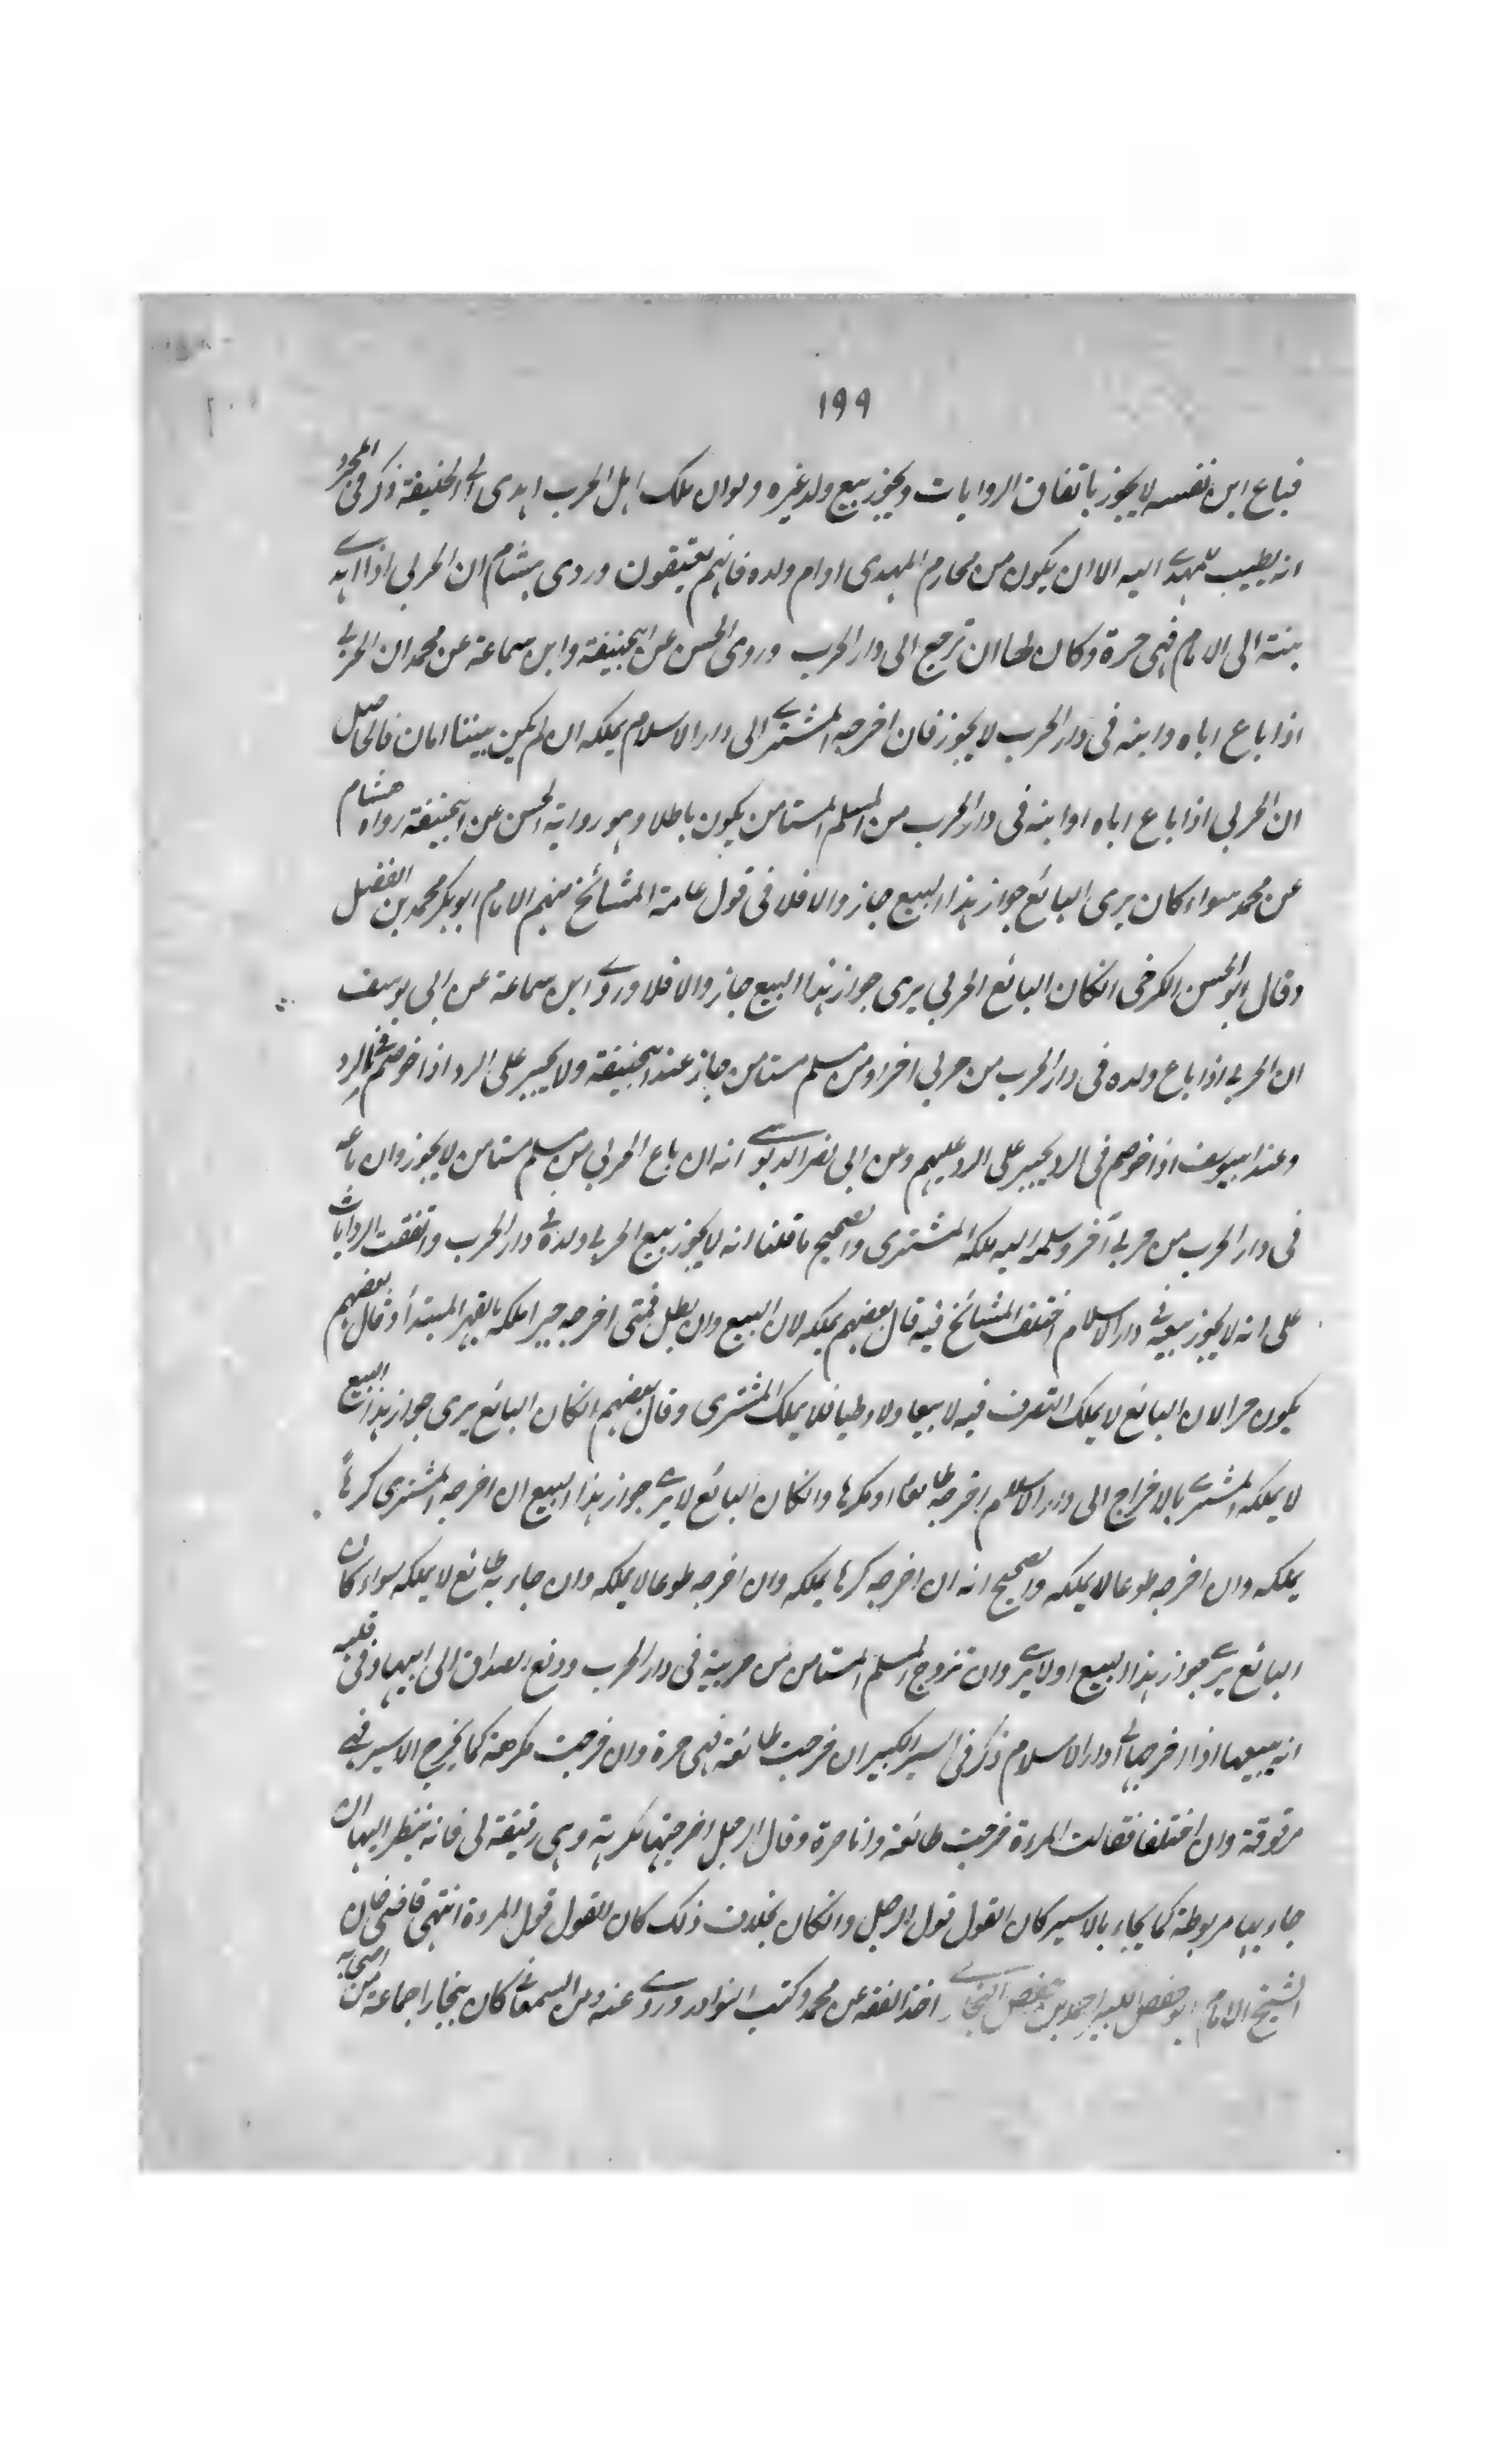 ١٩٩
فباع ابن نفسه لا يجوز باتفاق الروايات ويجوز بيع ولد غيره ولو ان ملك اهل الحرب اهدى الى الخليفة ذكر فى المجرد
انه يطيب للمهدے اليه الا ان يكون من محارم المهدى او ام ولده فانهم يعتقون وروى هشام ان الحربى اذا اهدے
بنته الى الامام فهى حرة وكان لها ان ترجع الى دار الحرب وروى الحسن عن ابيحنيفة وابن سماعة عن محمد ان الحربے
اذا باع اباه وابنه فى دار الحرب لا يجوز فان اخرجه المشترے الى دار الاسلام يملكه ان لم يكن بيننا امان فالحاصل
ان الحربى اذا باع اباه او ابنه فى دار الحرب من المسلم المستامن يكون باطلا وهو رواية الحسن عن ابيحنيفة رواه هشام
عن محمد سواء كان يرى البائع جواز هذا البيع جاز والا فلا فى قول عامة المشائخ منهم الامام ابوبكر محمد بن الفضل
وقال ابو الحسن الكرخى انكان البائع الحربى يرى جواز هذا البيع جاز والا فلا وروے ابن سماعة عن ابى يوسف
ان الحربے اذا باع ولده فى دار الحرب من حربى اخر او من مسلم مستامن جاز عند ابيحنيفة ولا يجبر على الرد اذا خوصم فى الرد
وعند ابيوسف اذا خوصم فى الرد يجبر على الرد عليهم وعن ابى نصر الدبوسے انه ان باع الحربى من مسلم مستامن لا يجوز وان باعه
فى دار الحرب من حربے آخر وسلمه اليه ملكه المشترى والصحيح ما قلنا انه لا يجوز بيع الحربے ولده فے دار الحرب واتفقت الروايات
على انه لا يجوز بيعه فے دار الاسلام اختلف المشائخ فيه قال بعضهم يملكه لان البيع وان بطل فمتى اخرجه جبرا ملكه بالقهر المبتدأ وقال بعضهم
يكون حرا لان البائع لا يملك التصرف فيه لا بيعا ولا وطيا فلا يملك المشترى وقال بعضهم انكان البائع يرى جواز هذا البيع
لا يملكه المشترے بالاخراج الى دار الاسلام اخرجه طائعا او مكرها وانكان البائع لا يرے جواز هذا البيع ان اخرجه المشترى كرهاً
يملكه وان اخرجه طوعا لا يملكه والصحيح انه ان اخرجه كرها يملكه وان اخرجه طوعا لا يملكه وان جاء به طائع لا يملكه سواء كان
البائع يرے جواز هذا البيع اولا يرے وان تزوج المسلم المستامن من حربية فى دار الحرب ودفع الصداق الى ابيها وفى قلبه
انه يبيعها اذا اخرجها الے دار الاسلام ذكر فى السير الكبير ان خرجت طائعة فهى حرة وان خرجت مكرهة كما يخرج الاسير فهے
مرقوقة وان اختلفا فقالت المرءة خرجت طائعة وانا حرة وقال الرجل اخرجتها مكرهة وهى رقيقة لى فانه ينظر اليها ان
جاء بها مربوطة كما يجاء بالاسير كان القول قول الرجل وانكان بخلاف ذلك كان القول قول المرءة انتهى قاضى خان
الشيخ الامام ابو حفص الكبير احمد بن حفص البخارے اخذ الفقه عن محمد وكتب النوادر وروے عنه ومن السمعانے كان ببخارا جماعة من اصحابه